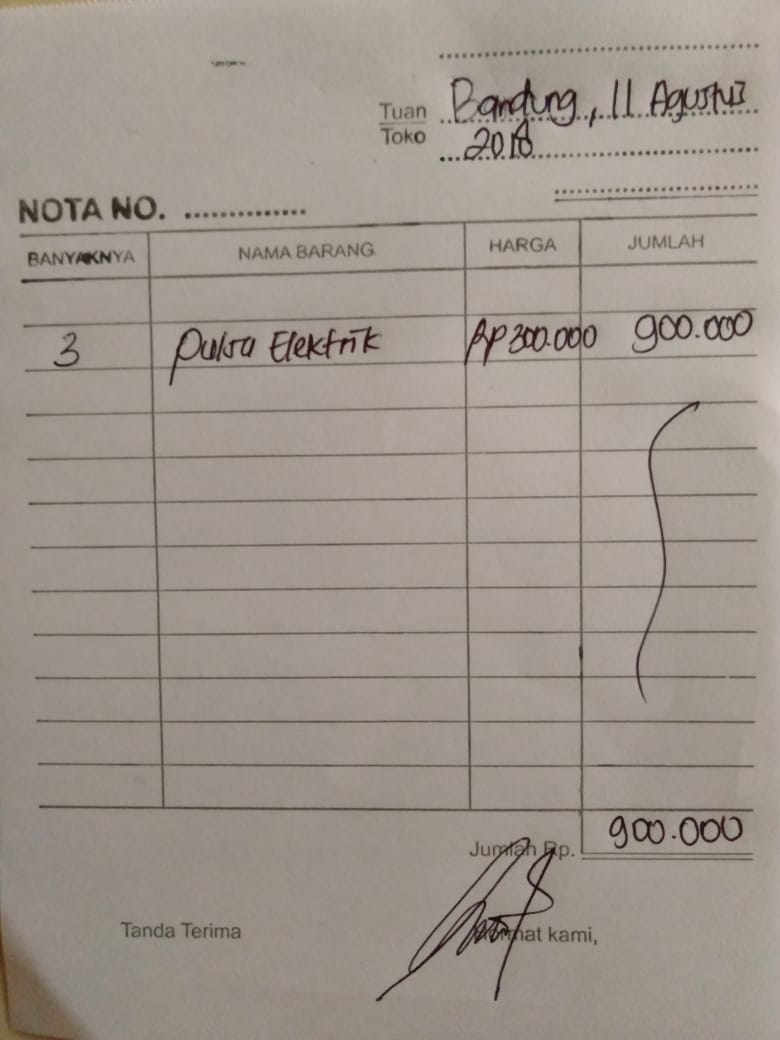 Tuan Bandung, 11 Agustus
Toko 2018
NOTA NO. ..............
BANYAKNYA NAMA BARANG HARGA JUMLAH
3 Pulsa Elektrik Rp 300.000 900.000
Jumlah Rp. 900.000
Tanda Terima Hormat kami,